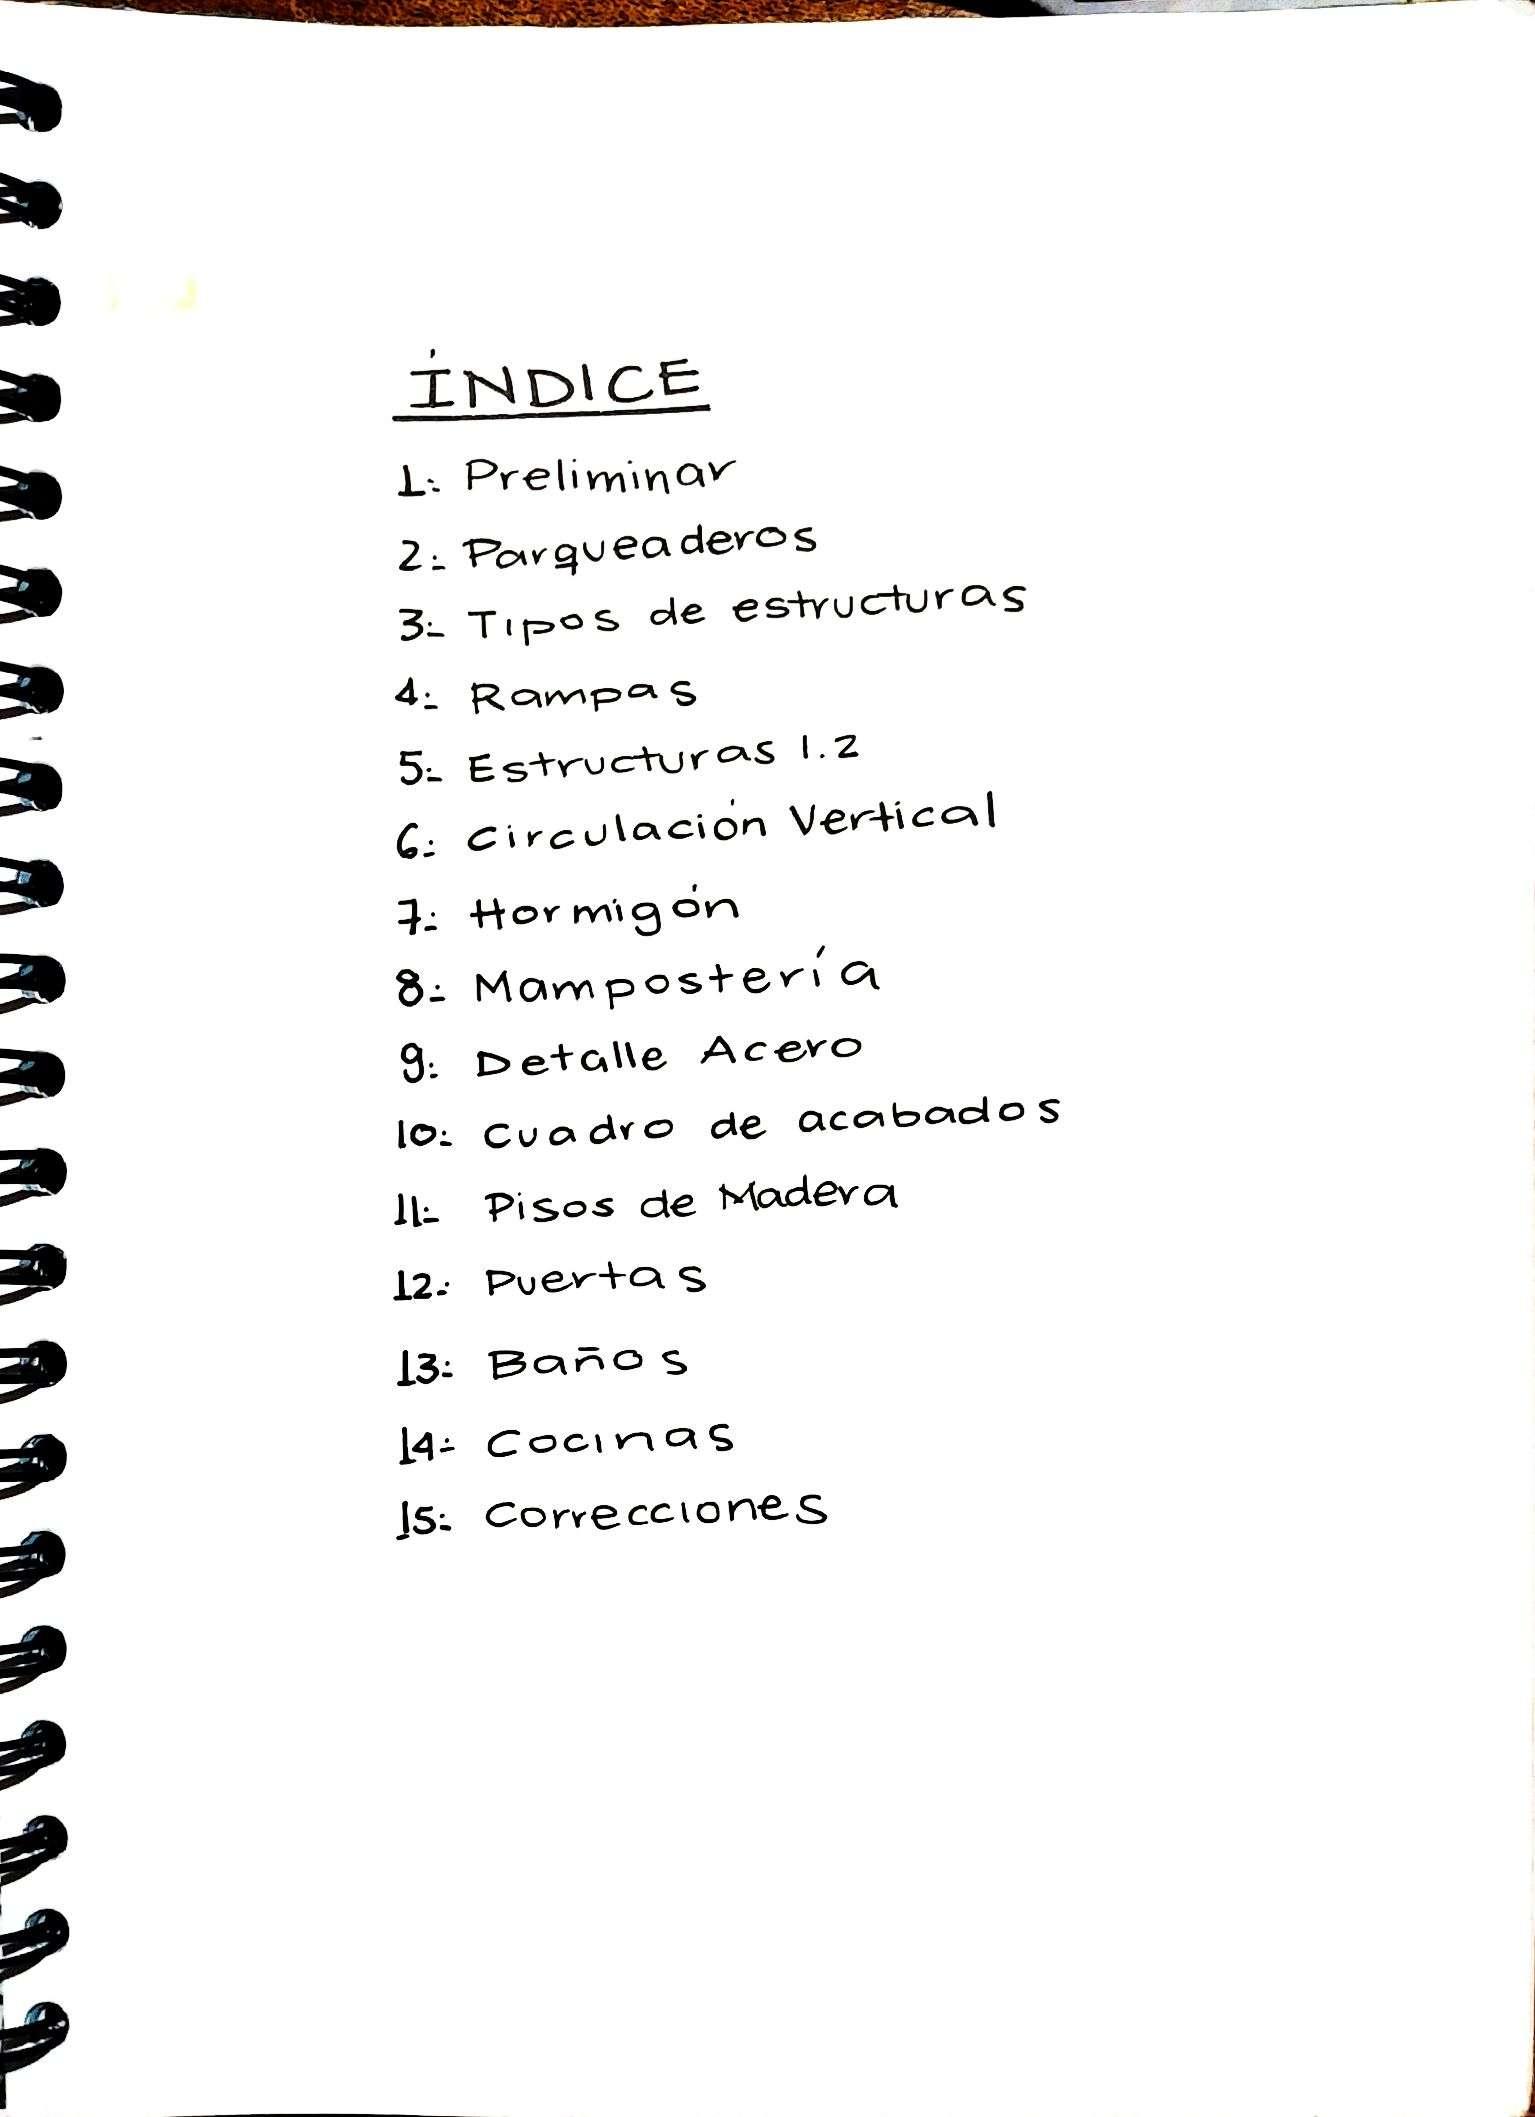 ÍNDICE
1.- Preliminar
2.- Parqueaderos
3.- Tipos de estructuras
4.- Rampas
5.- Estructuras 1.2
6.- Circulación Vertical
7.- Hormigón
8.- Mampostería
9.- Detalle Acero
10.- Cuadro de acabados
11.- Pisos de Madera
12.- Puertas
13.- Baños
14.- Cocinas
15.- Correcciones